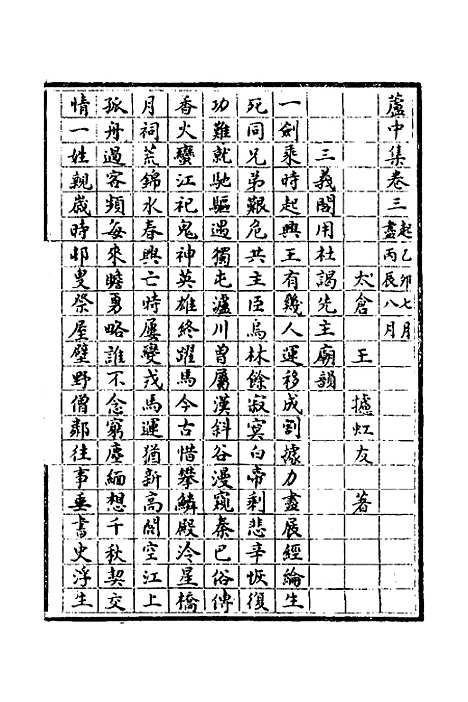 蘆中集卷三起乙卯七月盡丙辰八月
太倉 王 攄虹友 著
三義閣用杜謁先主廟韻
一劍乘時起興王有幾人運移成割據力盡展經綸生
死同兄弟艱危共主臣烏林餘寂寞白帝剩悲辛恢復
功難就馳驅遇獨屯瀘川曾屬漢斜谷漫窺秦巴俗傳
香火蠻江祀鬼神英雄終躍馬今古惜攀鱗殿冷星橋
月祠荒錦水春興亡時屢變戎馬運猶新高閣空江上
孤舟過客頻每來瞻勇略誰不念窮塵緬想千秋契交
情一姓親歲時邨叟祭屋壁野僧鄰往事垂書史浮生